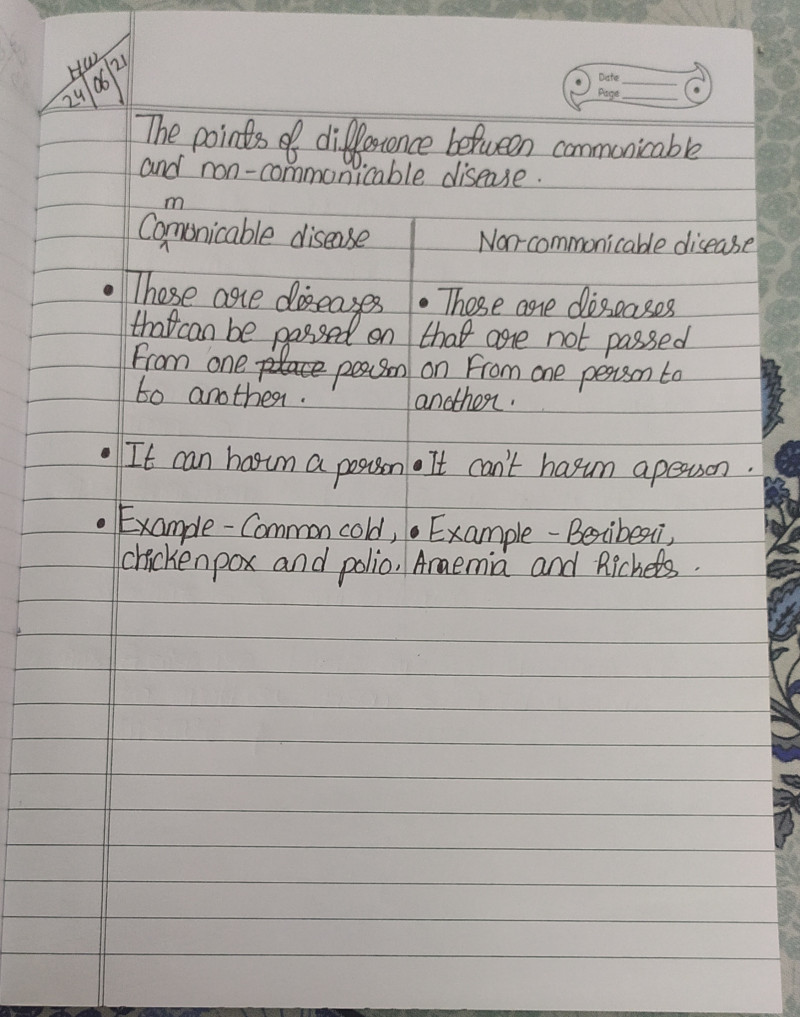 HW
24/06/21
Date
Page
The points of difference between commonicable
and non-commonicable disease.
m
Comonicable disease
Non-commonicable disease
• These are diseases
that can be passed on
From one place person
to another.
• These are diseases
that are not passed
on From one person to
another.
• It can harm a person
• It can't harm a person.
• Example - Common cold,
chickenpox and polio.
• Example - Beriberi,
Anaemia and Rickets.